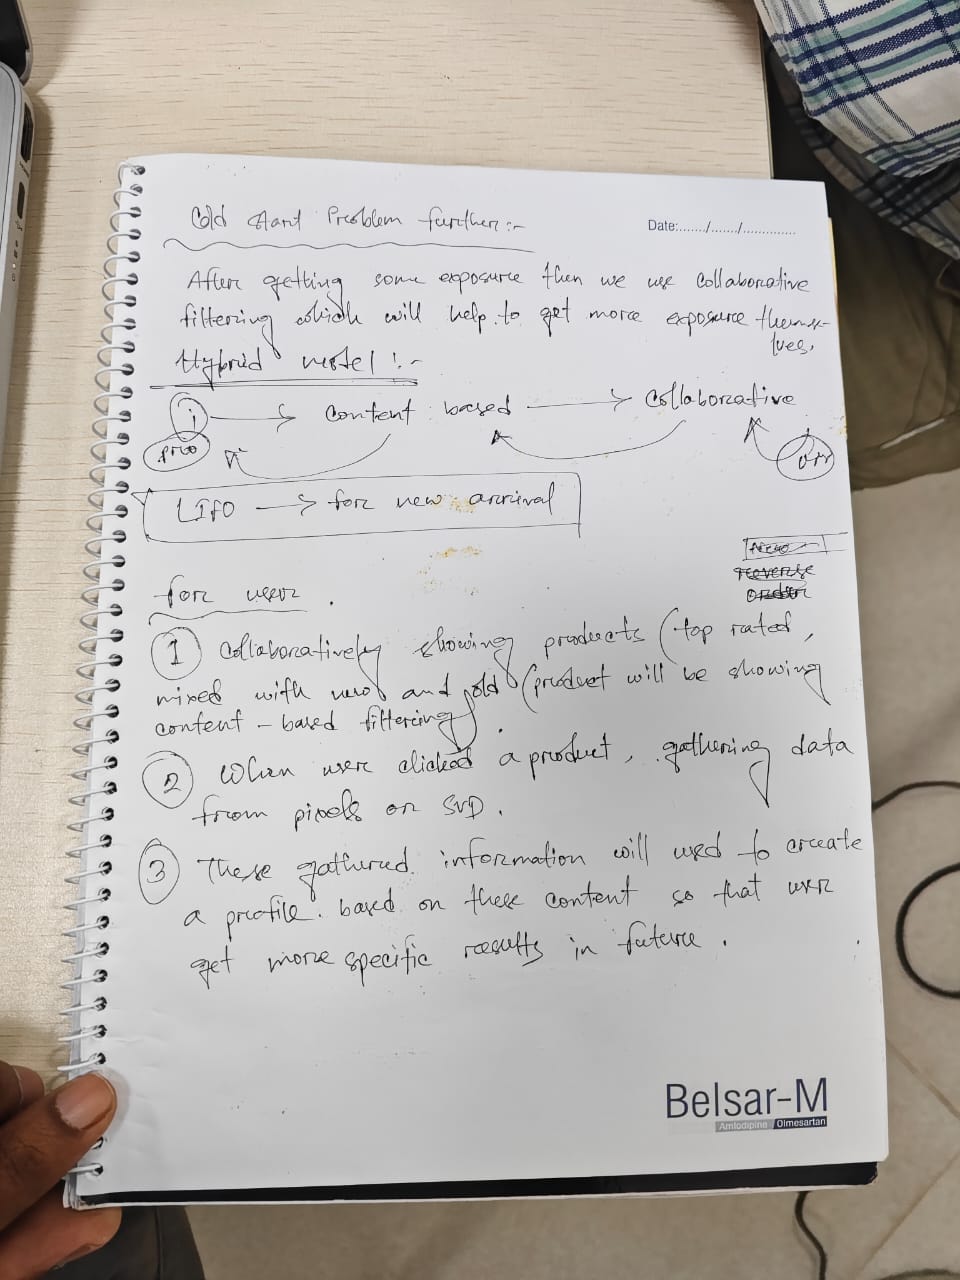 Cold start Problem further :-
Date:......./......./..............
After getting some exposure then we use collaborative
filtering which will help to get more exposure themse-
lves.
Hybrid model :-
i → content based → collaborative
pro
usr
LIFO → for new arrival
New
reverse
order
for user.
1 collaboratively showing products (top rated,
mixed with new and old (product will be showing
content-based filtering).
2 When user clicked a product, gathering data
from pixels or SVD.
3 These gathered information will used to create
a profile based on these content so that user
get more specific results in future.
Belsar-M
Amlodipine Olmesartan